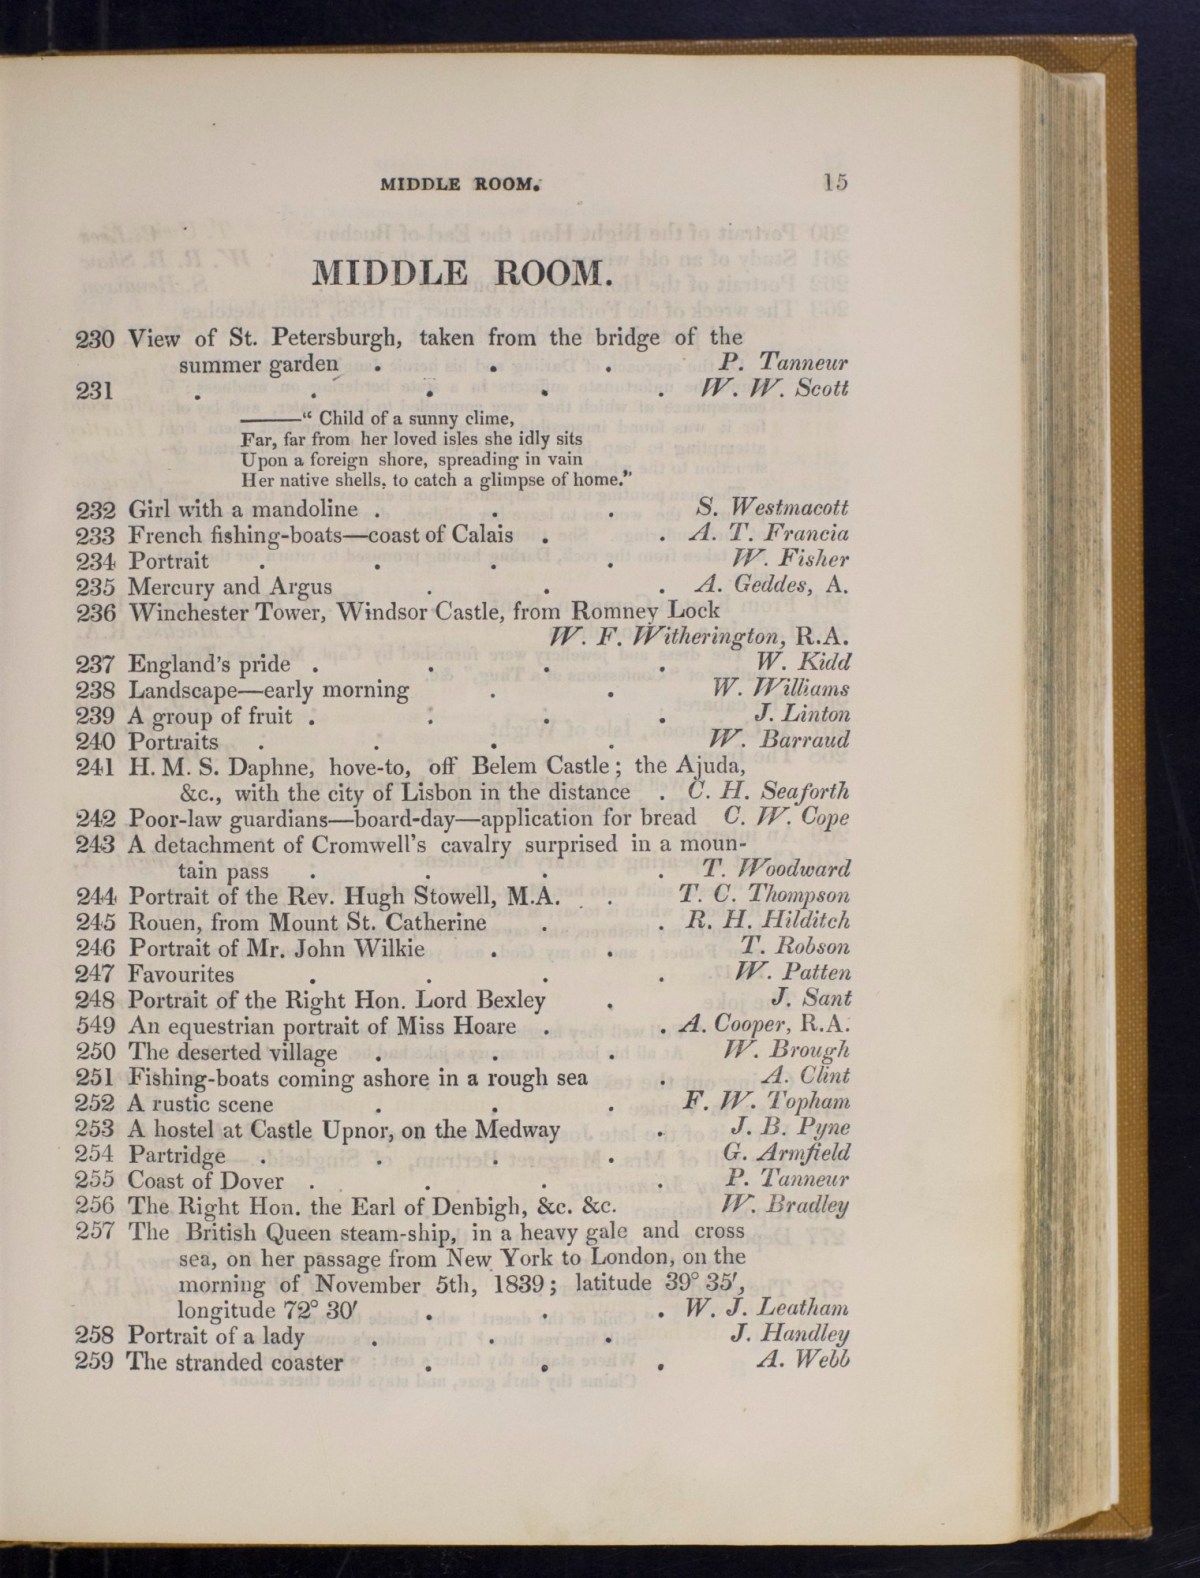 MIDDLE ROOM. 15
MIDDLE ROOM.
230 View of St. Petersburgh, taken from the bridge of the
summer garden . . . P. Tanneur
231 . . . . . W. W. Scott
———“ Child of a sunny clime,
Far, far from her loved isles she idly sits
Upon a foreign shore, spreading in vain
Her native shells, to catch a glimpse of home.”
232 Girl with a mandoline . . . S. Westmacott
233 French fishing-boats—coast of Calais . . A. T. Francia
234 Portrait . . . . W. Fisher
235 Mercury and Argus . . . A. Geddes, A.
236 Winchester Tower, Windsor Castle, from Romney Lock
W. F. Witherington, R.A.
237 England’s pride . . . . W. Kidd
238 Landscape—early morning . . W. Williams
239 A group of fruit . . . . J. Linton
240 Portraits . . . . W. Barraud
241 H. M. S. Daphne, hove-to, off Belem Castle; the Ajuda,
&c., with the city of Lisbon in the distance . C. H. Seaforth
242 Poor-law guardians—board-day—application for bread C. W. Cope
243 A detachment of Cromwell’s cavalry surprised in a moun-
tain pass . . . . T. Woodward
244 Portrait of the Rev. Hugh Stowell, M.A. . . T. C. Thompson
245 Rouen, from Mount St. Catherine . . R. H. Hilditch
246 Portrait of Mr. John Wilkie . . T. Robson
247 Favourites . . . . W. Patten
248 Portrait of the Right Hon. Lord Bexley . J. Sant
549 An equestrian portrait of Miss Hoare . . A. Cooper, R.A.
250 The deserted village . . . W. Brough
251 Fishing-boats coming ashore in a rough sea . A. Clint
252 A rustic scene . . . F. W. Topham
253 A hostel at Castle Upnor, on the Medway . J. B. Pyne
254 Partridge . . . . G. Armfield
255 Coast of Dover . . . . P. Tanneur
256 The Right Hon. the Earl of Denbigh, &c. &c. W. Bradley
257 The British Queen steam-ship, in a heavy gale and cross
sea, on her passage from New York to London, on the
morning of November 5th, 1839; latitude 39° 35′,
longitude 72° 30′ . . . W. J. Leatham
258 Portrait of a lady . . . J. Handley
259 The stranded coaster . . . A. Webb